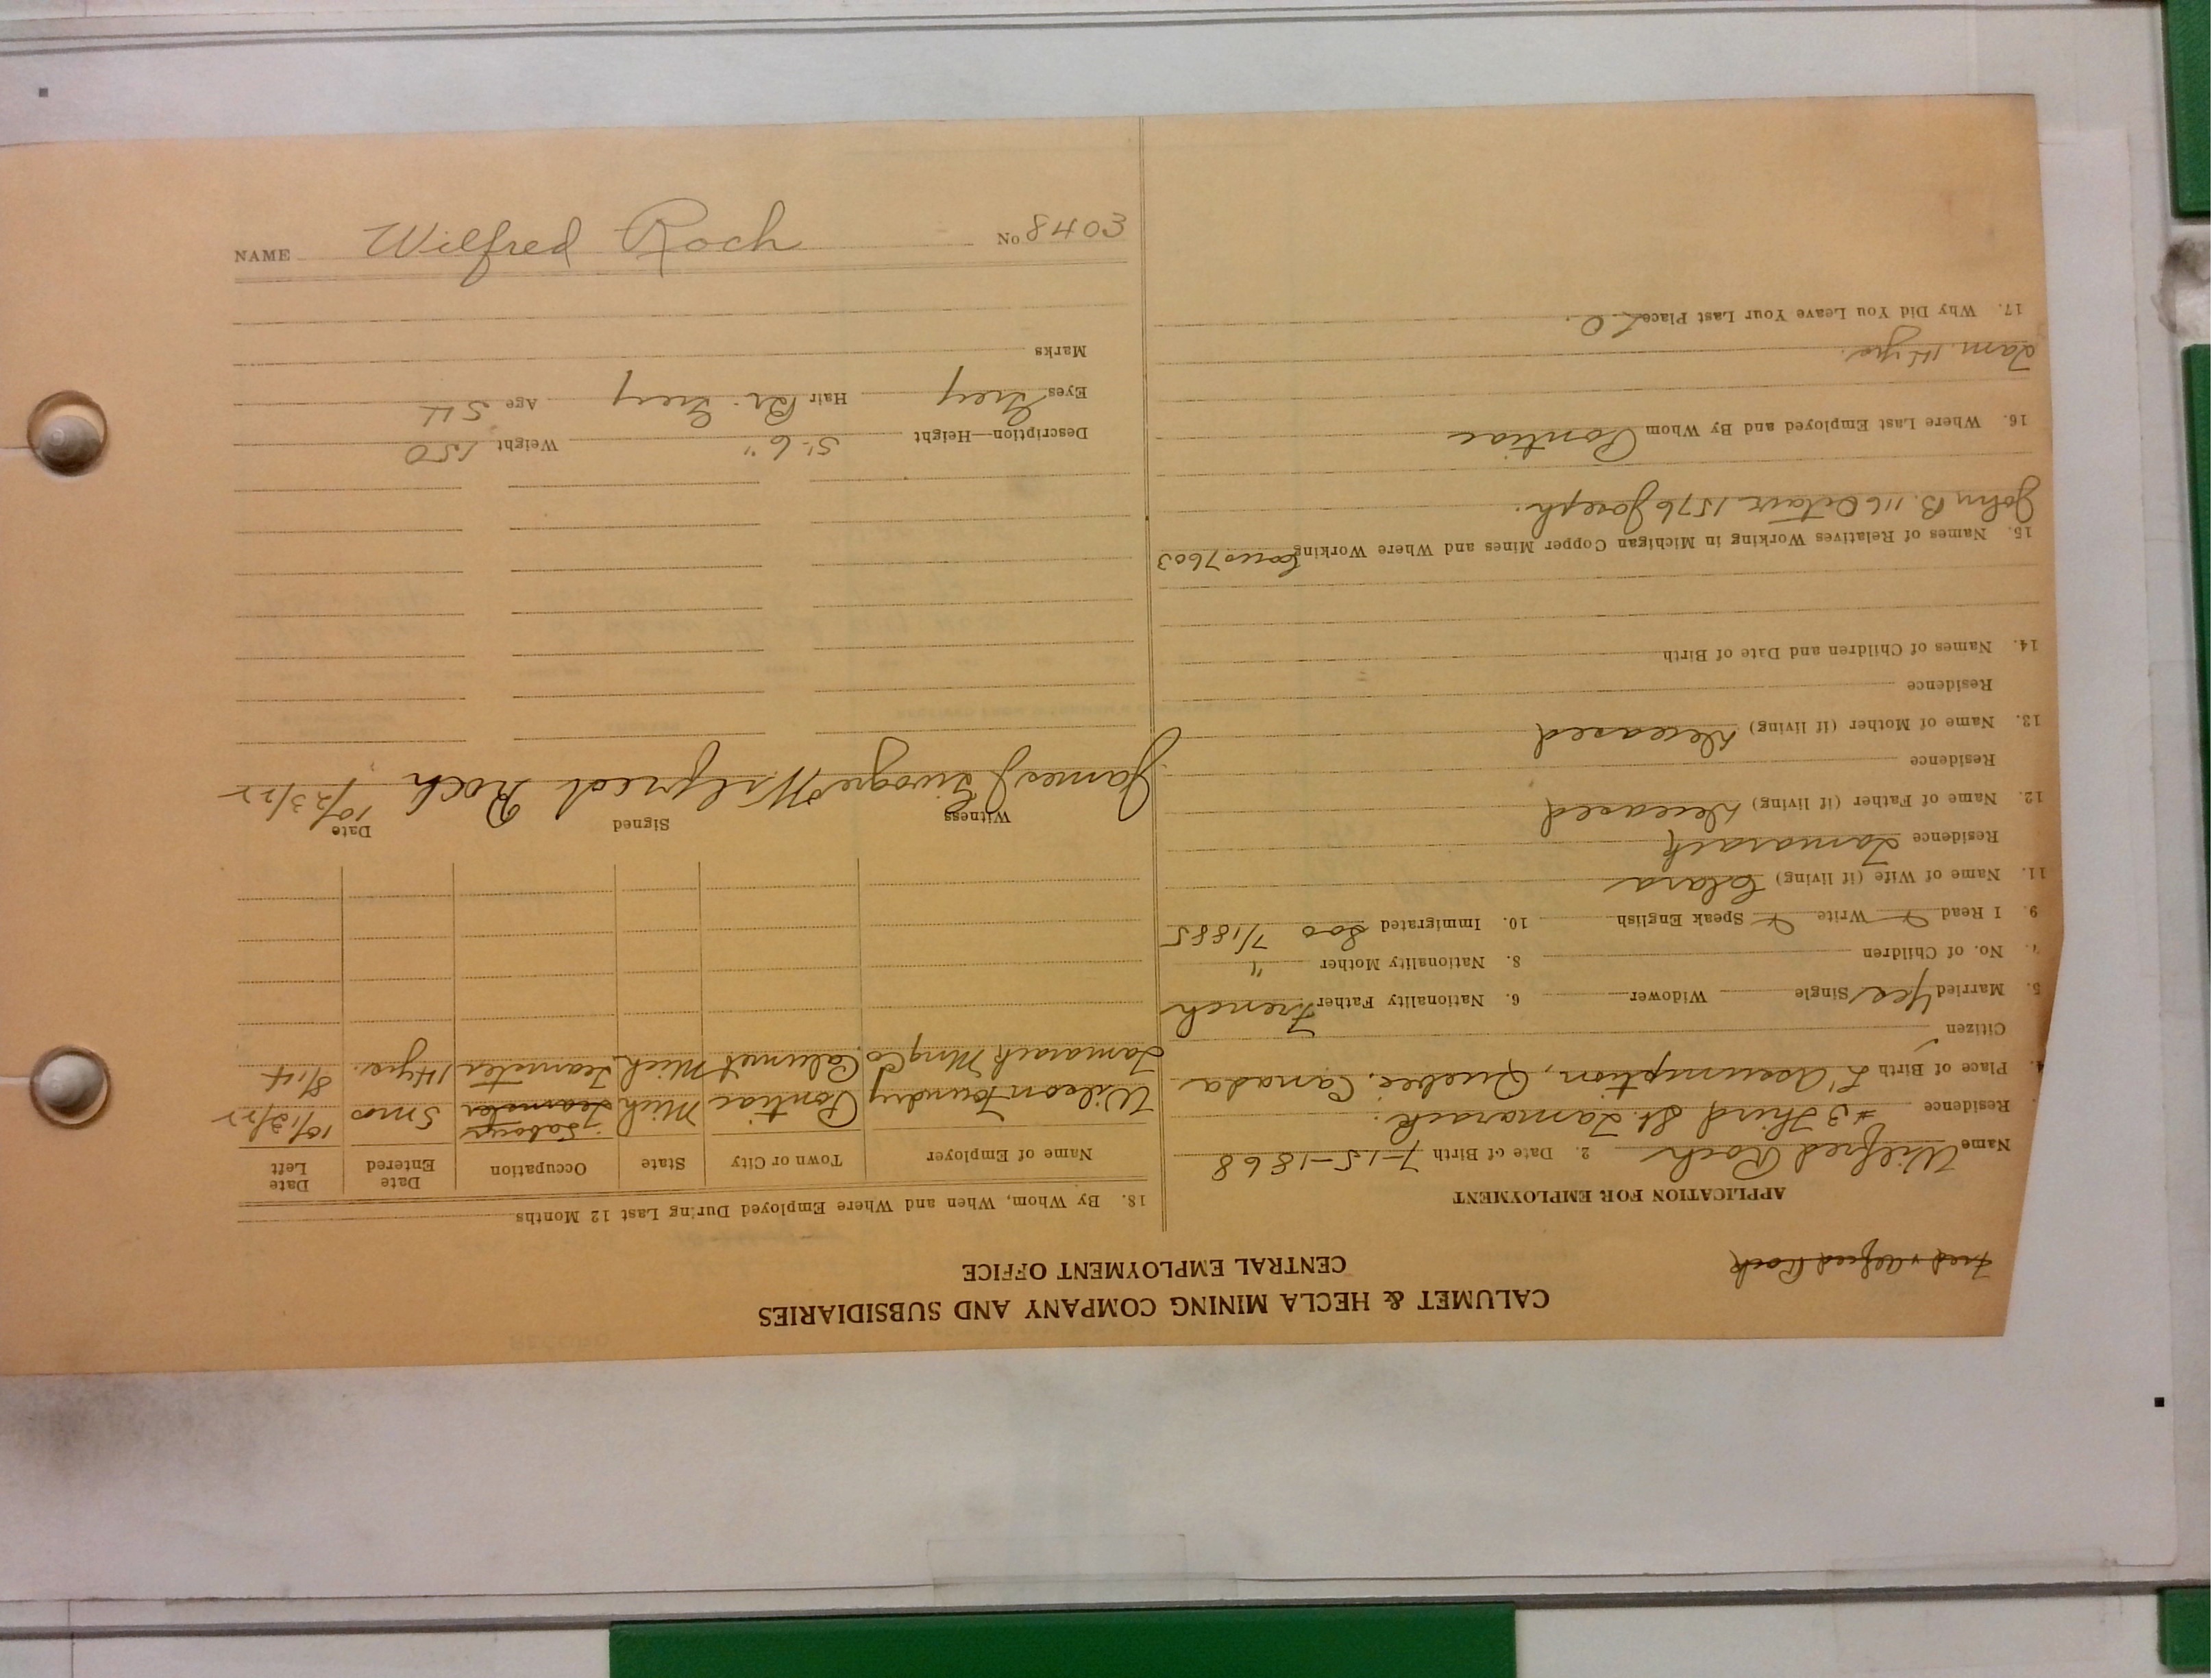 Fred & Alfred Roch
CALUMET & HECLA MINING COMPANY AND SUBSIDIARIES
CENTRAL EMPLOYMENT OFFICE
APPLICATION FOR EMPLOYMENT
Name Wilfred Roch 2. Date of Birth 7-15-1868
Residence #3 Third St. Tamarack.
Place of Birth L'Assumption, Quebec, Canada
Citizen
5. Married Yes Single Widower 6. Nationality Father French
7. No. of Children 8. Nationality Mother "
9. I Read Write Speak English 10. Immigrated Soo 7/1885
11. Name of Wife (if living) Clara
Residence Tamarack
12. Name of Father (if living) Deceased
Residence
13. Name of Mother (if living) Deceased
Residence
14. Names of Children and Date of Birth
15. Names of Relatives Working in Michigan Copper Mines and Where Working 7603
John B. 116 Octave 1576 Joseph.
16. Where Last Employed and By Whom Pontiac
Tam. 14 yrs.
17. Why Did You Leave Your Last Place L.O.
18. By Whom, When and Where Employed During Last 12 Months
Name of Employer Town or City State Occupation Date Entered Date Left
Wilson Foundry Pontiac Mich Teamster Laborer 5 mos 10/13/22
Tamarack Mng Co. Calumet Mich Teamster 14 yrs. 8/14
Witness Signed Date
James J. Wilfred Roch 10/23/22
Description—Height 5'-6" Weight 150
Eyes Grey Hair Br. Grey Age 54
Marks
NAME Wilfred Roch No 8403